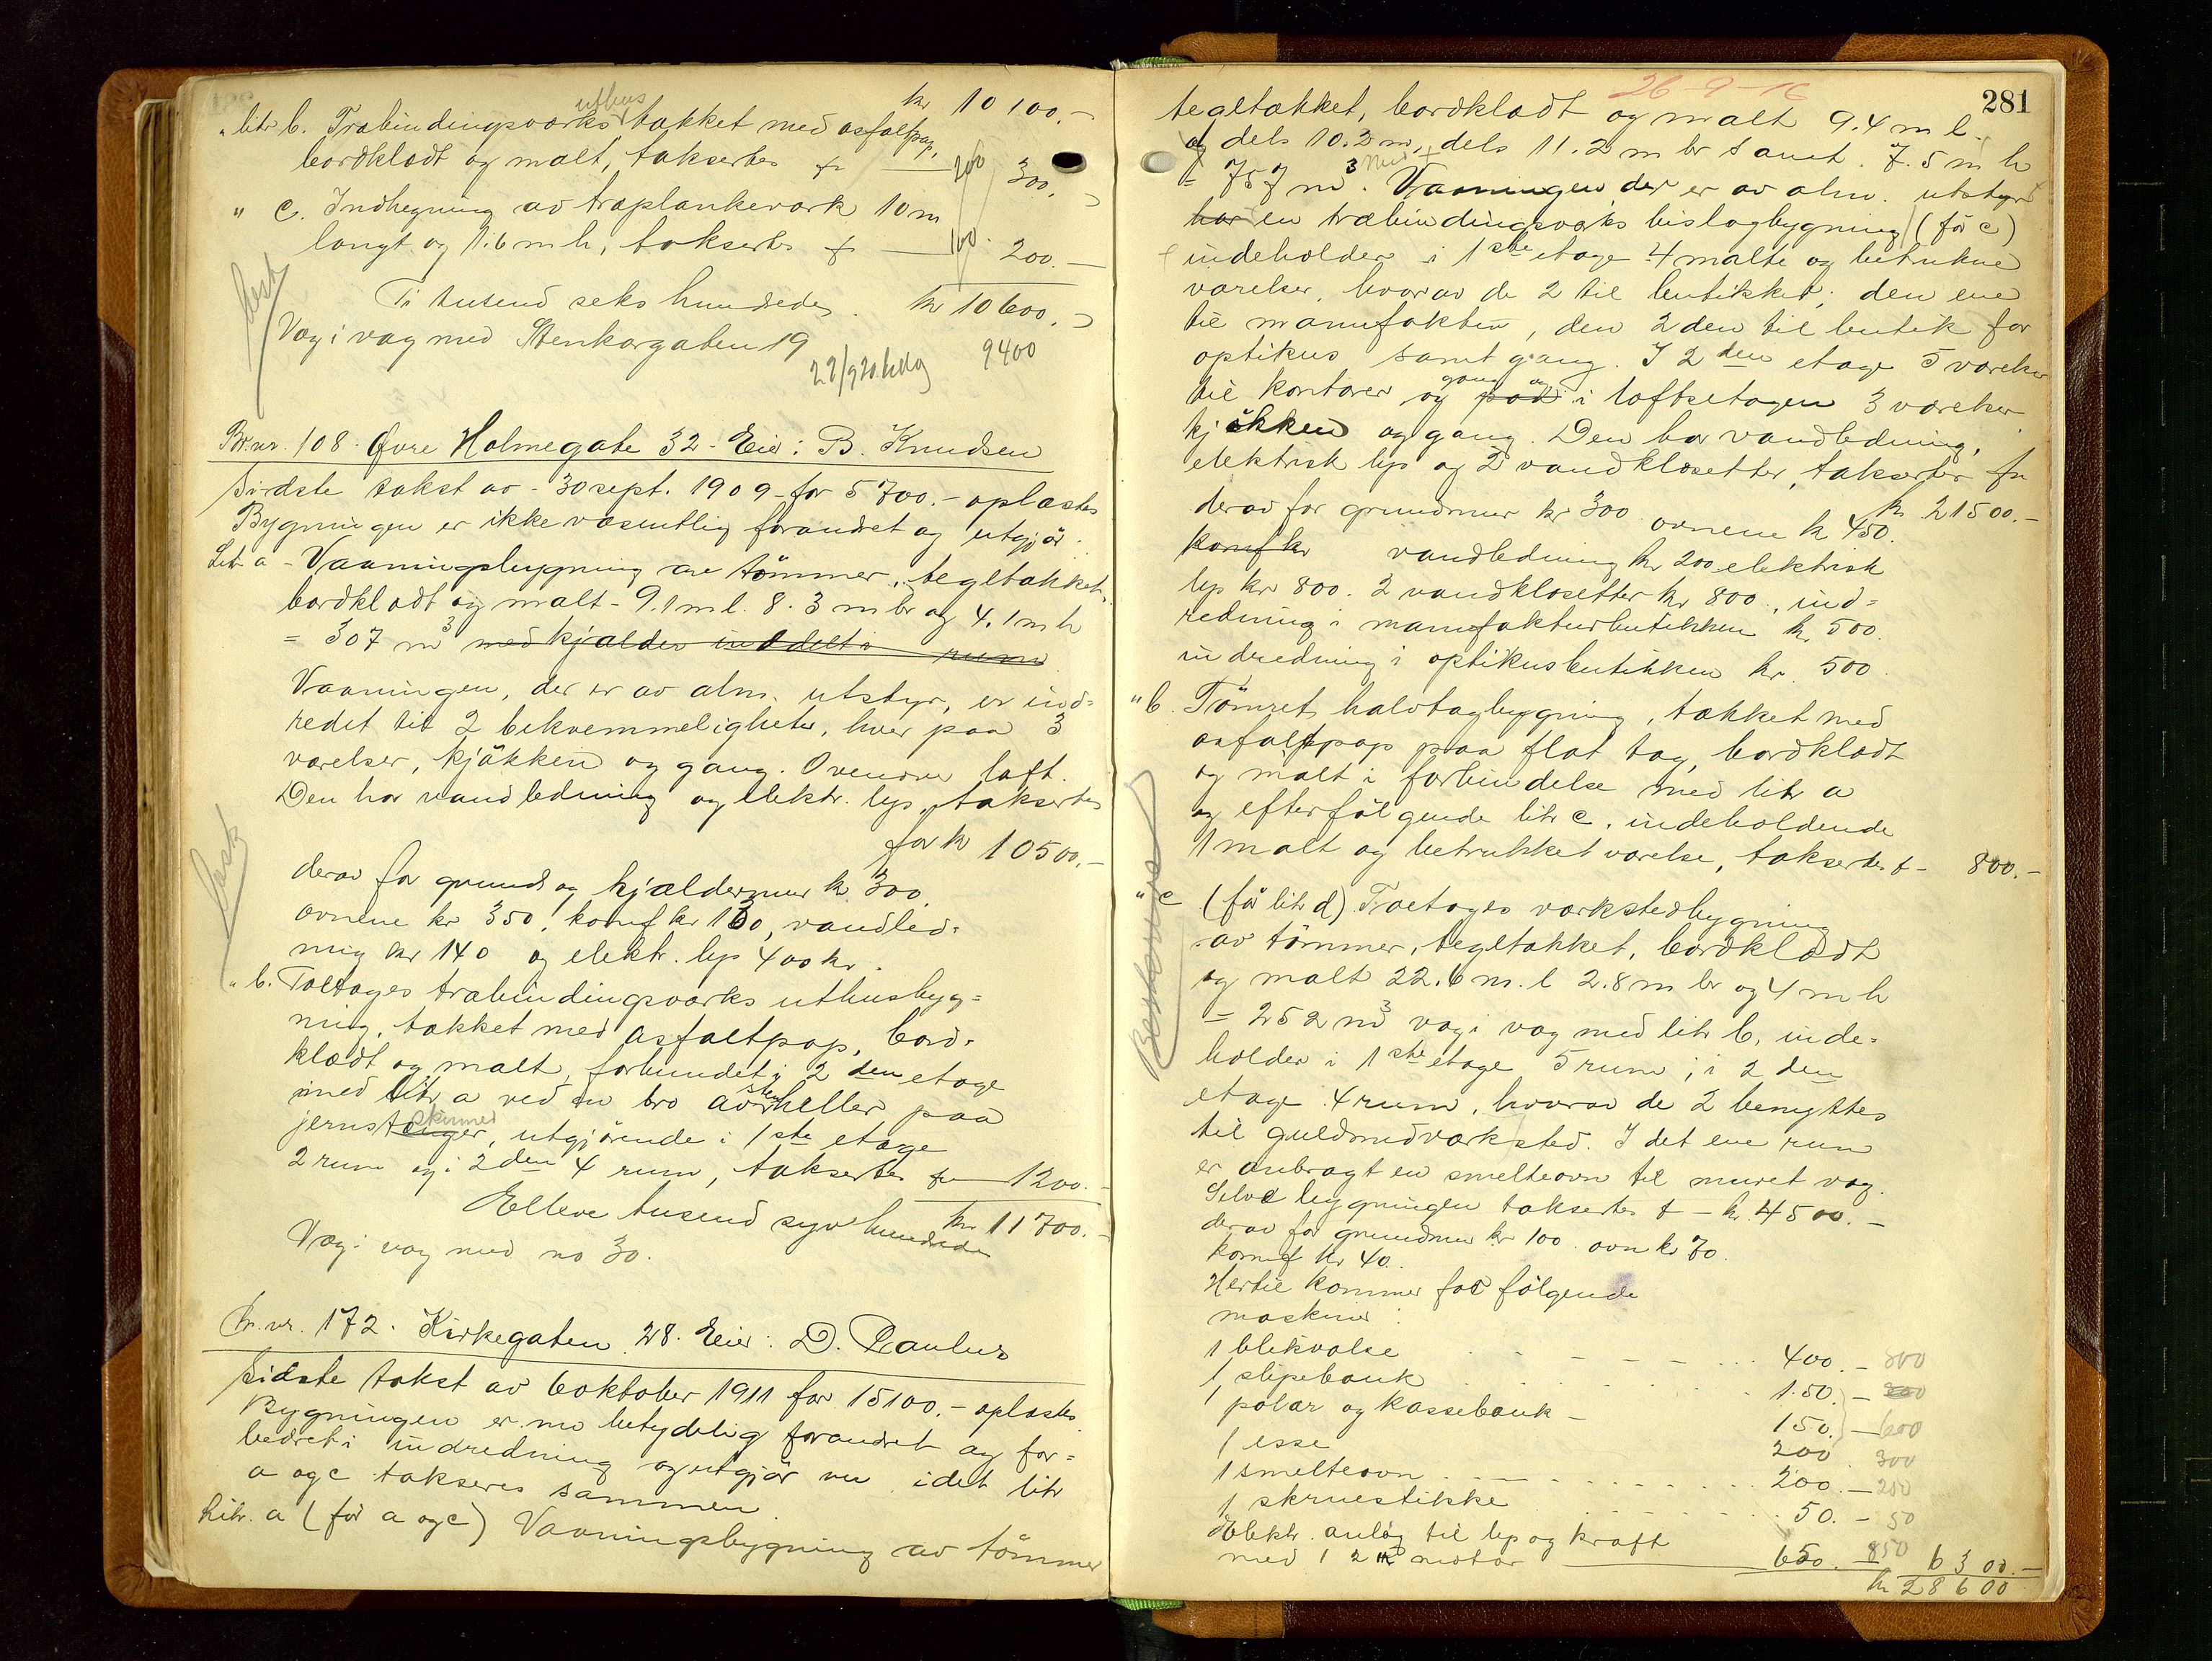 kr 10100.-
" litr b. Træbindingsværks uthus takket med asfaltpap,
bordklædt og malt, takseres fr 200 300.-
" c. Indhegning av træplankeværk 10 m
langt og 1.6 m h, taksertes fr 100. 200.-
Ti tusend seks hundrede. kr 10600.-
Væg i væg med Stenkargaten 19
9400
Br.nr. 108. Øvre Holmegate 32 - Eier: B. Knudsen
Sidste takst av - 30 sept. 1909 - for 5700.- oplæstes
Bygningen er ikke væsentlig forandret og utgjør.
Litr a - Vaaningsbygning av tömmer, tegltækket,
bordklædt og malt - 9.1 m l. 8.3 m br og 4.1 m h
= 307 m3 med kjælder inddelt i rum
Vaaningen, der er av alm. utstyr, er ind=
redet til 2 bekvemmeligheter, hver paa 3
værelser, kjökken og gang. Ovenover loft.
Den har vandledning og elektr. lys, taksertes
for kr 10500.-
derav for grund og kjældermur kr 300.
ovnene kr 350, komf kr 130, vandled=
ning kr 140 og elektr. lys 400 kr.
" b. Toetages træbindingsværks uthusbyg=
ning, takket med asfaltpap, bord=
klædt og malt, forbundet i 2den etage
med litr a ved en bro av stenheller paa
jernstænger skinner, utgjörende i 1ste etage
2 rum og i 2den 4 rum, taksertes fr 1200.-
Elleve tusend syv hundrede kr 11700.-
Væg i væg med no 30.
Br.nr. 172. Kirkegaten 28. Eier: D. Paulus
Sidste takst av 6 oktober 1911 for 15100.- oplæstes.
Bygningen er nu betydelig forandret og for=
bedret i indredning og utgjør nu idet litr
a og c takseres sammen.
Litr. a (för a og c) Vaaningsbygning av tömmer
281
26-9-16
tegltakket, bordklædt og malt 9.4 m l.
og dels 10.2 m, dels 11.2 m br samt 7.5 m h
= 757 m3. Vaaningen der er av alm. utstyr
har en træbindingsværks bislagbygning (för c)
indeholder i 1ste etage 4 malte og betrukne
værelser, hvorav de 2 til butikker; den ene
til manufaktur, den 2den til butik for
optikus samt gang. I 2den etage 5 værelser
til kontorer og gang og i loftsetagen 3 værelser
kjökken og gang. Den har vandledning,
elektrisk lys og 2 vandklosetter, taksertes fr
kr 21500.-
derav for grundmur kr 300. ovnene kr 450.
komf kr vandledning kr 200 elektrisk
lys kr 800. 2 vandklosetter kr 800, ind=
redning i manufakturbutikken kr. 500.
indredning i optikusbutikken kr. 500.
" b. Tömret halvtagbygning, takket med
asfaltpap paa flat tag, bordklædt
og malt i forbindelse med litr a
og efterfölgende litr c, indeholdende
1 malt og betrukket værelse, taksertes f - 800.-
" c (för litr d) Toetages værkstedbygning
av tömmer, tegltakket, bordklædt
og malt 22.6 m. l 2.8 m br og 4 m h
= 252 m3 væg i væg med litr b, inde=
holder i 1ste etage 5 rum; i 2den
etage 4 rum, hvorav de 2 benyttes
til guldsmedværksted. I det ene rum
er anbragt en smelteovn til muret væg.
Selve bygningen taksertes f - kr. 4500.-
derav for grundmur kr 100. ovn kr 70.
komf kr 40.
Hertil kommer for fölgende
maskiner:
1 blikvalse 400.- 800
1 slipebænk 150.- 200
1 polær og kassebænk - 150.- 600
1 esse 200 300
1 smelteovn 200.- 200
1 skruestikke 50.- 50
Elektr. anlæg til lys og kraft
med 1 2 HK motor 650.- 850 6300.-
kr 28600